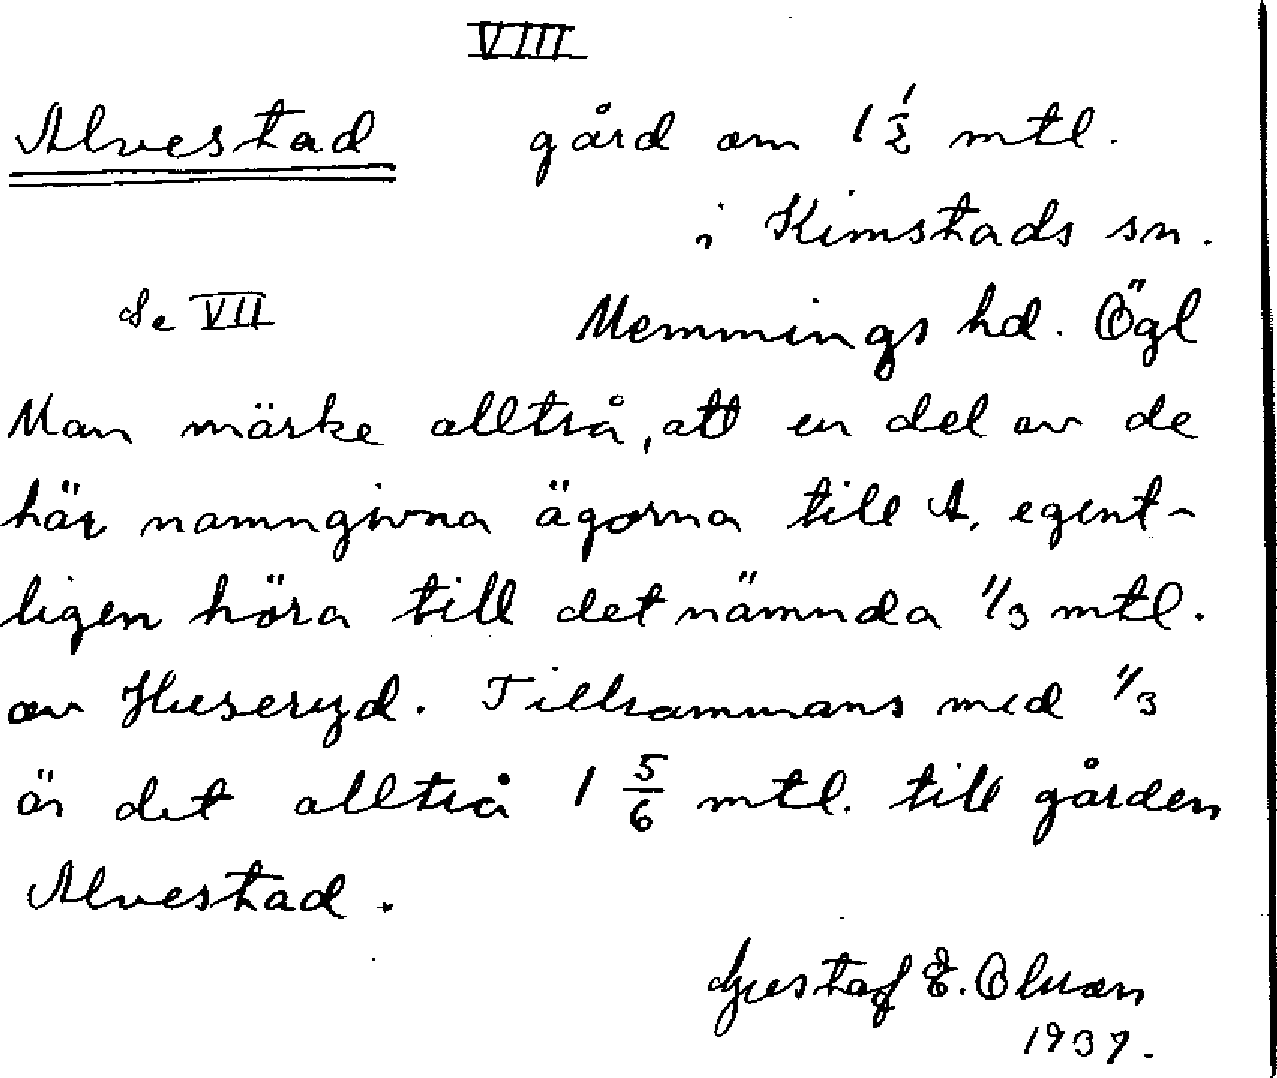 VIII
Alvestad gård om 1 1/2 mtl.
i Kimstads sn.
Se VII Memmings hd. Ögl
Man märke alltså, att en del av de
här namngivna ägorna till A. egent-
ligen höra till det nämnda 1/3 mtl.
av Huseryd. Tillsammans med 1/3
är det alltså 1 5/6 mtl. till gården
Alvestad.
Gustaf E. Olsson
1937.